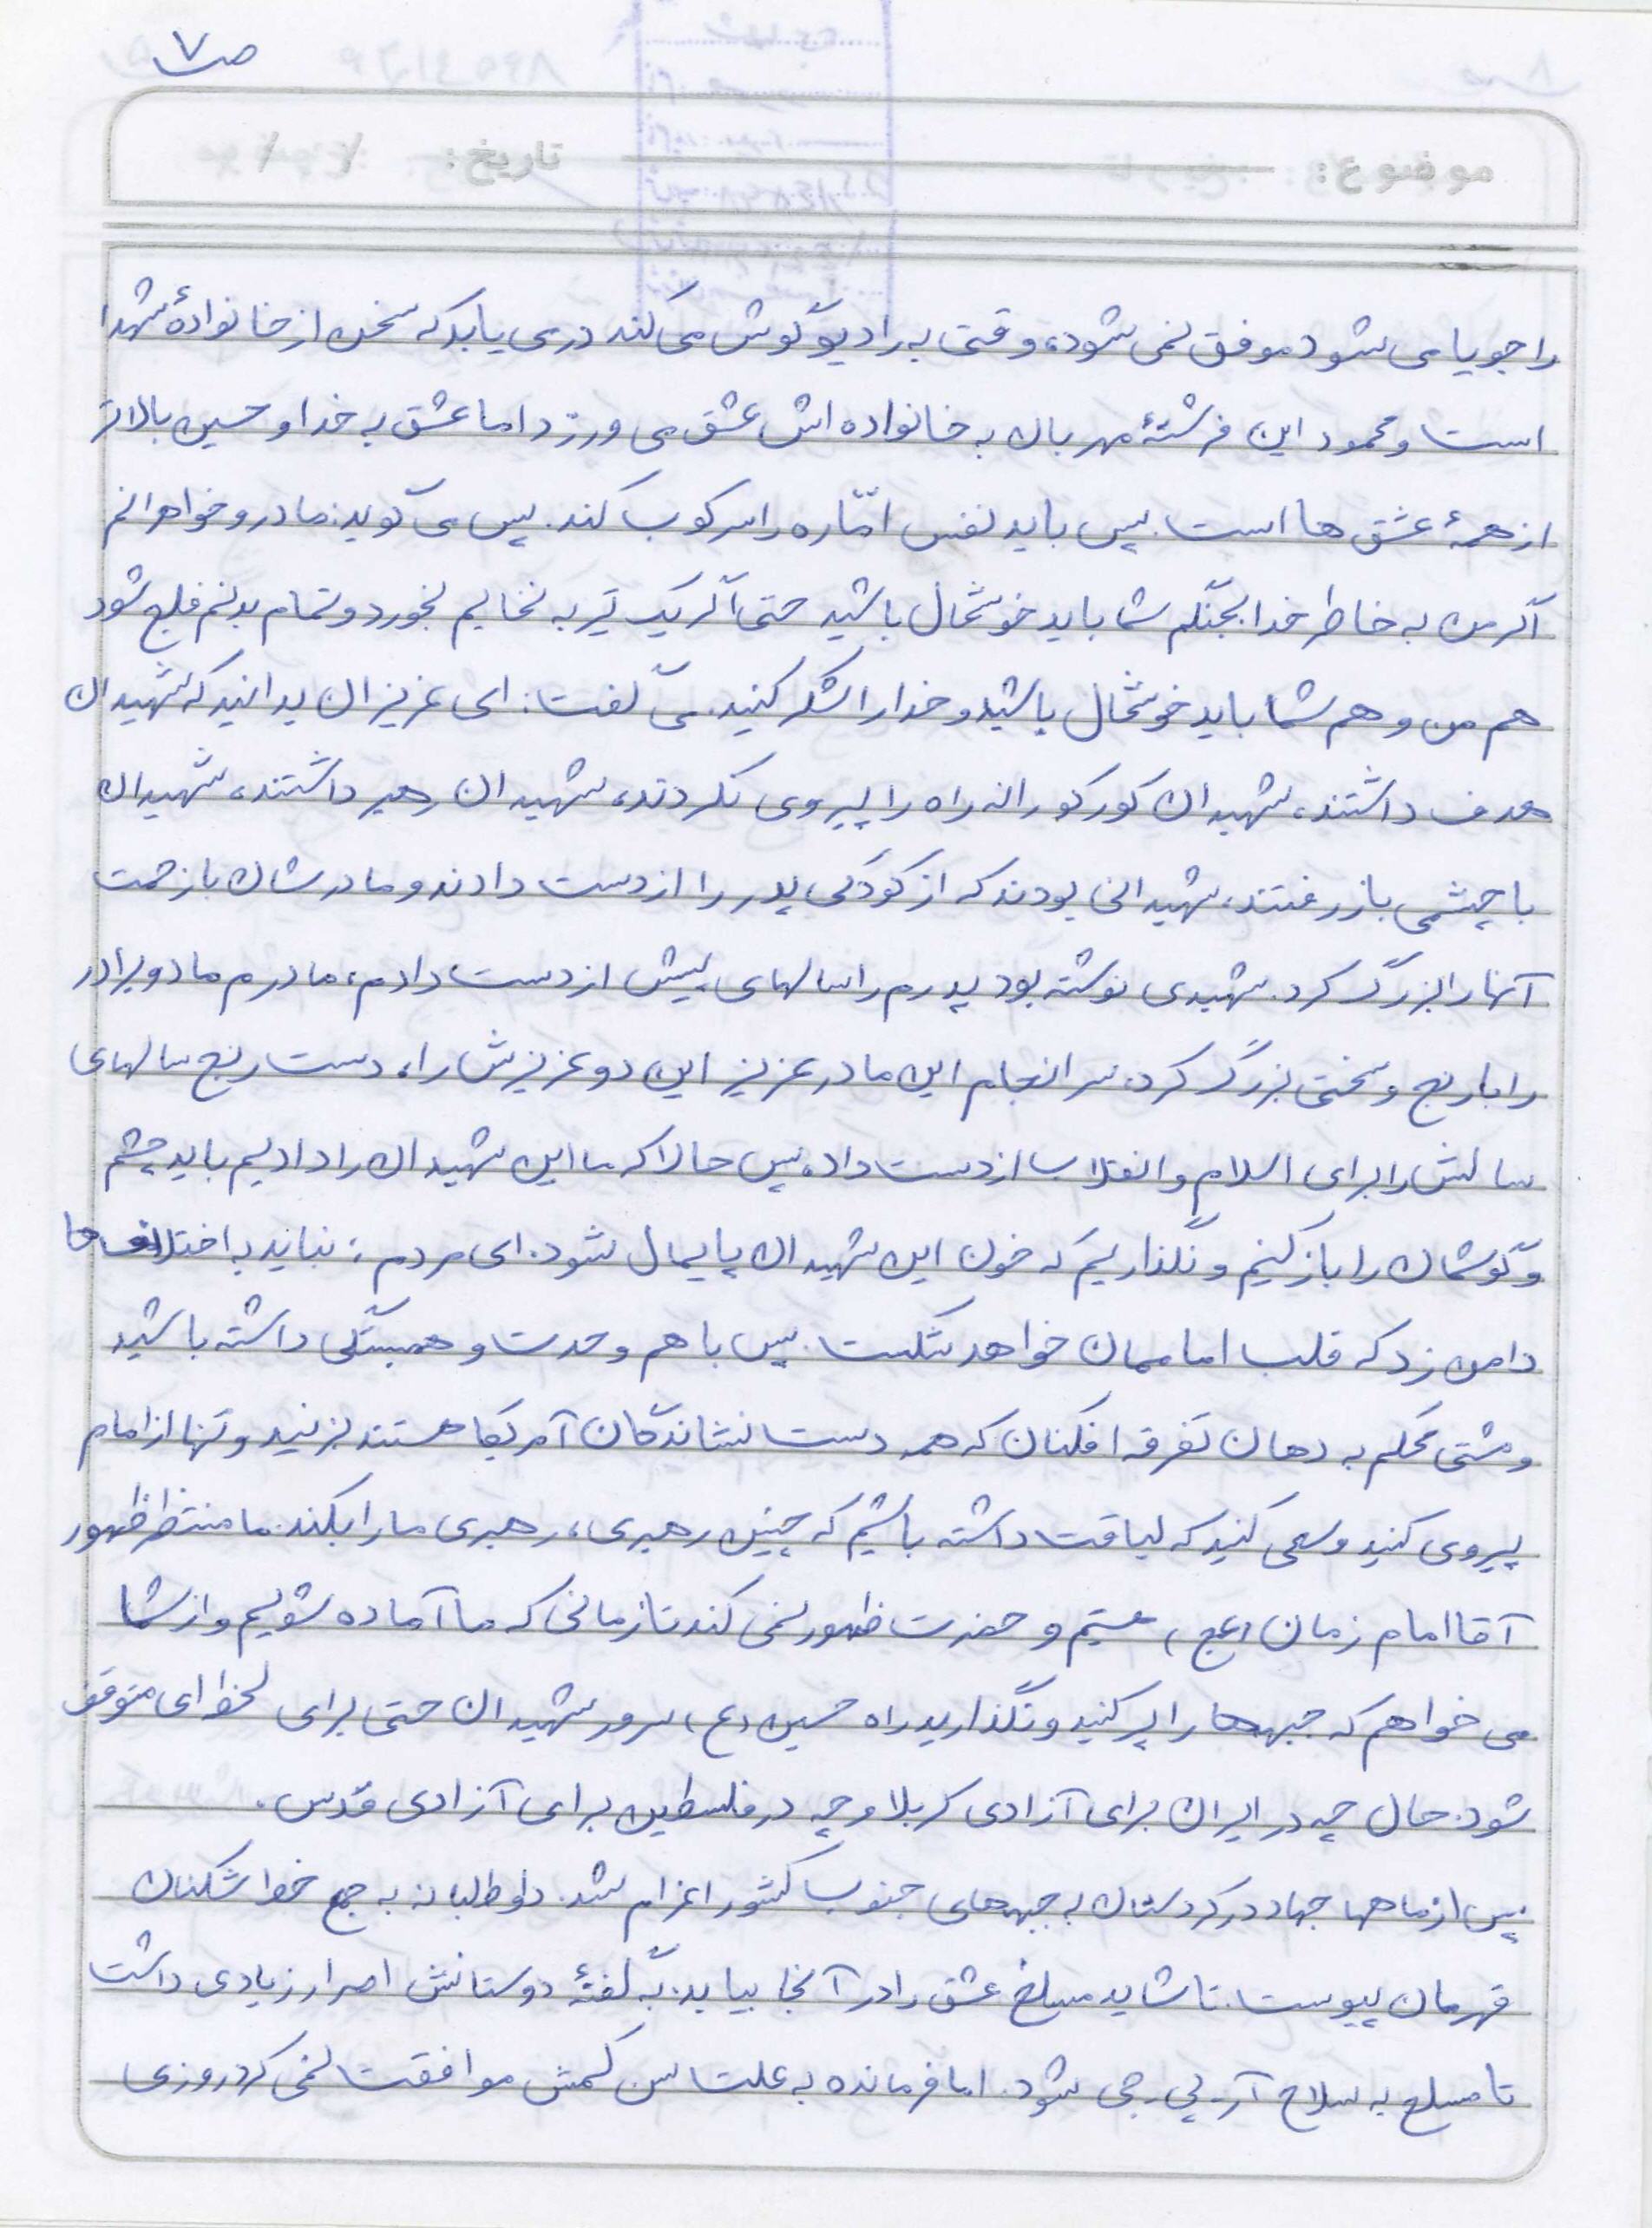 ص ۷
موضوع: تاریخ: / /
را جویا می شود موفق نمی شود، وقتی به رادیو گوش می کند در می یابد که سخن از خانوادهٔ شهدا
است و محمود این فرشتهٔ مهربان به خانواده اش عشق می ورزد اما عشق به خدا و حسین بالاتر
از همهٔ عشق ها است. پس باید نفس امّاره را سرکوب کند. پس می گوید: مادر و خواهرانم
اگر من به خاطر خدا بجنگم شما باید خوشحال باشید حتی اگر یک تیر به نخایم بخورد و تمام بدنم فلج شود
هم من و هم شما باید خوشحال باشید و خدا را شکر کنید. می گفت: ای عزیزان بدانید که شهیدان
هدف داشتند، شهیدان کورکورانه راه را پیروی نکردند، شهیدان رهبر داشتند، شهیدان
با چشمی باز رفتند، شهیدانی بودند که از کودکی پدر را از دست دادند و مادرشان با زحمت
آنها را بزرگ کرد. شهیدی نوشته بود پدرم را سالهای پیش از دست دادم، مادرم ما دو برادر
را با رنج و سختی بزرگ کرد، سرانجام این مادر عزیز این دو عزیزش را، دست رنج سالهای
سالش را برای اسلام و انقلاب از دست داد، پس حالا که ما این شهیدان را دادیم باید چشم
و گوشمان را باز کنیم و نگذاریم که خون این شهیدان پایمال شود. ای مردم: نباید به اختلاف ها
دامن زد که قلب اماممان خواهد شکست. پس با هم وحدت و همبستگی داشته باشید
و مشتی محکم به دهان تفرقه افکنان که همه دست نشاندگان آمریکا هستند بزنید و تنها از امام
پیروی کنید و سعی کنید که لیاقت داشته باشیم که چنین رهبری، رهبری ما را بکند. ما منتظر ظهور
آقا امام زمان (عج) هستیم و حضرت ظهور نمی کند تا زمانی که ما آماده شویم و از شما
می خواهم که جبهه ها را پر کنید و نگذارید راه حسین (ع) سرور شهیدان حتی برای لحظه ای متوقف
شود. حال چه در ایران برای آزادی کربلا و چه در فلسطین برای آزادی قدس.
پس از ماهها جهاد در کردستان به جبهه های جنوب کشور اعزام شد. داوطلبانه به جمع خط شکنان
قهرمان پیوست. تا شاید مسلخ عشق را در آنجا بیابد. به گفتهٔ دوستانش اصرار زیادی داشت
تا مسلح به سلاح آر-پی-جی شود. اما فرمانده به علت سن کمش موافقت نمی کرد روزی